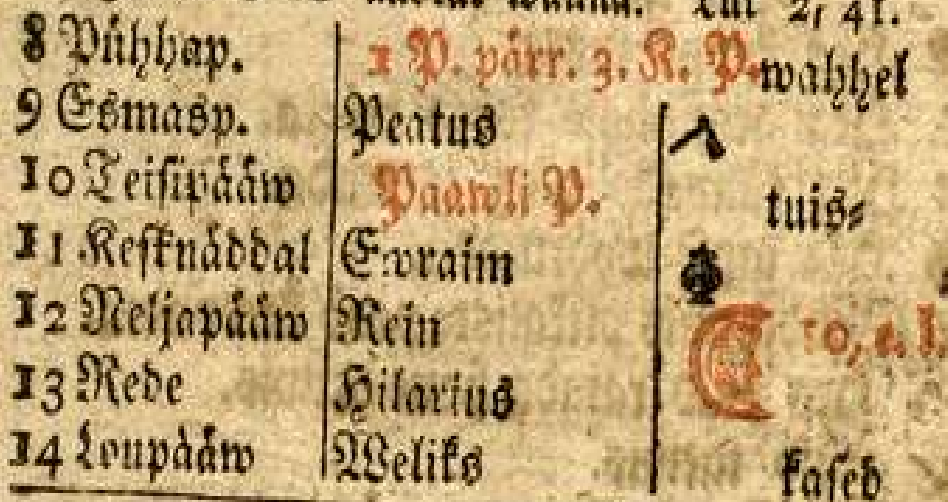 wanna. Luk 2, 41.
8 Pühhap. 1 P. pärr. 3. K. P. wahhel
9 Esmasp. Peatus
10 Teisipääw Paawli P. tuis⸗
11 Kesknäddal Ewraim
12 Neljapääw Rein 10, e. l.
13 Rede Hilarius
14 Loupääw Weliks kaseb